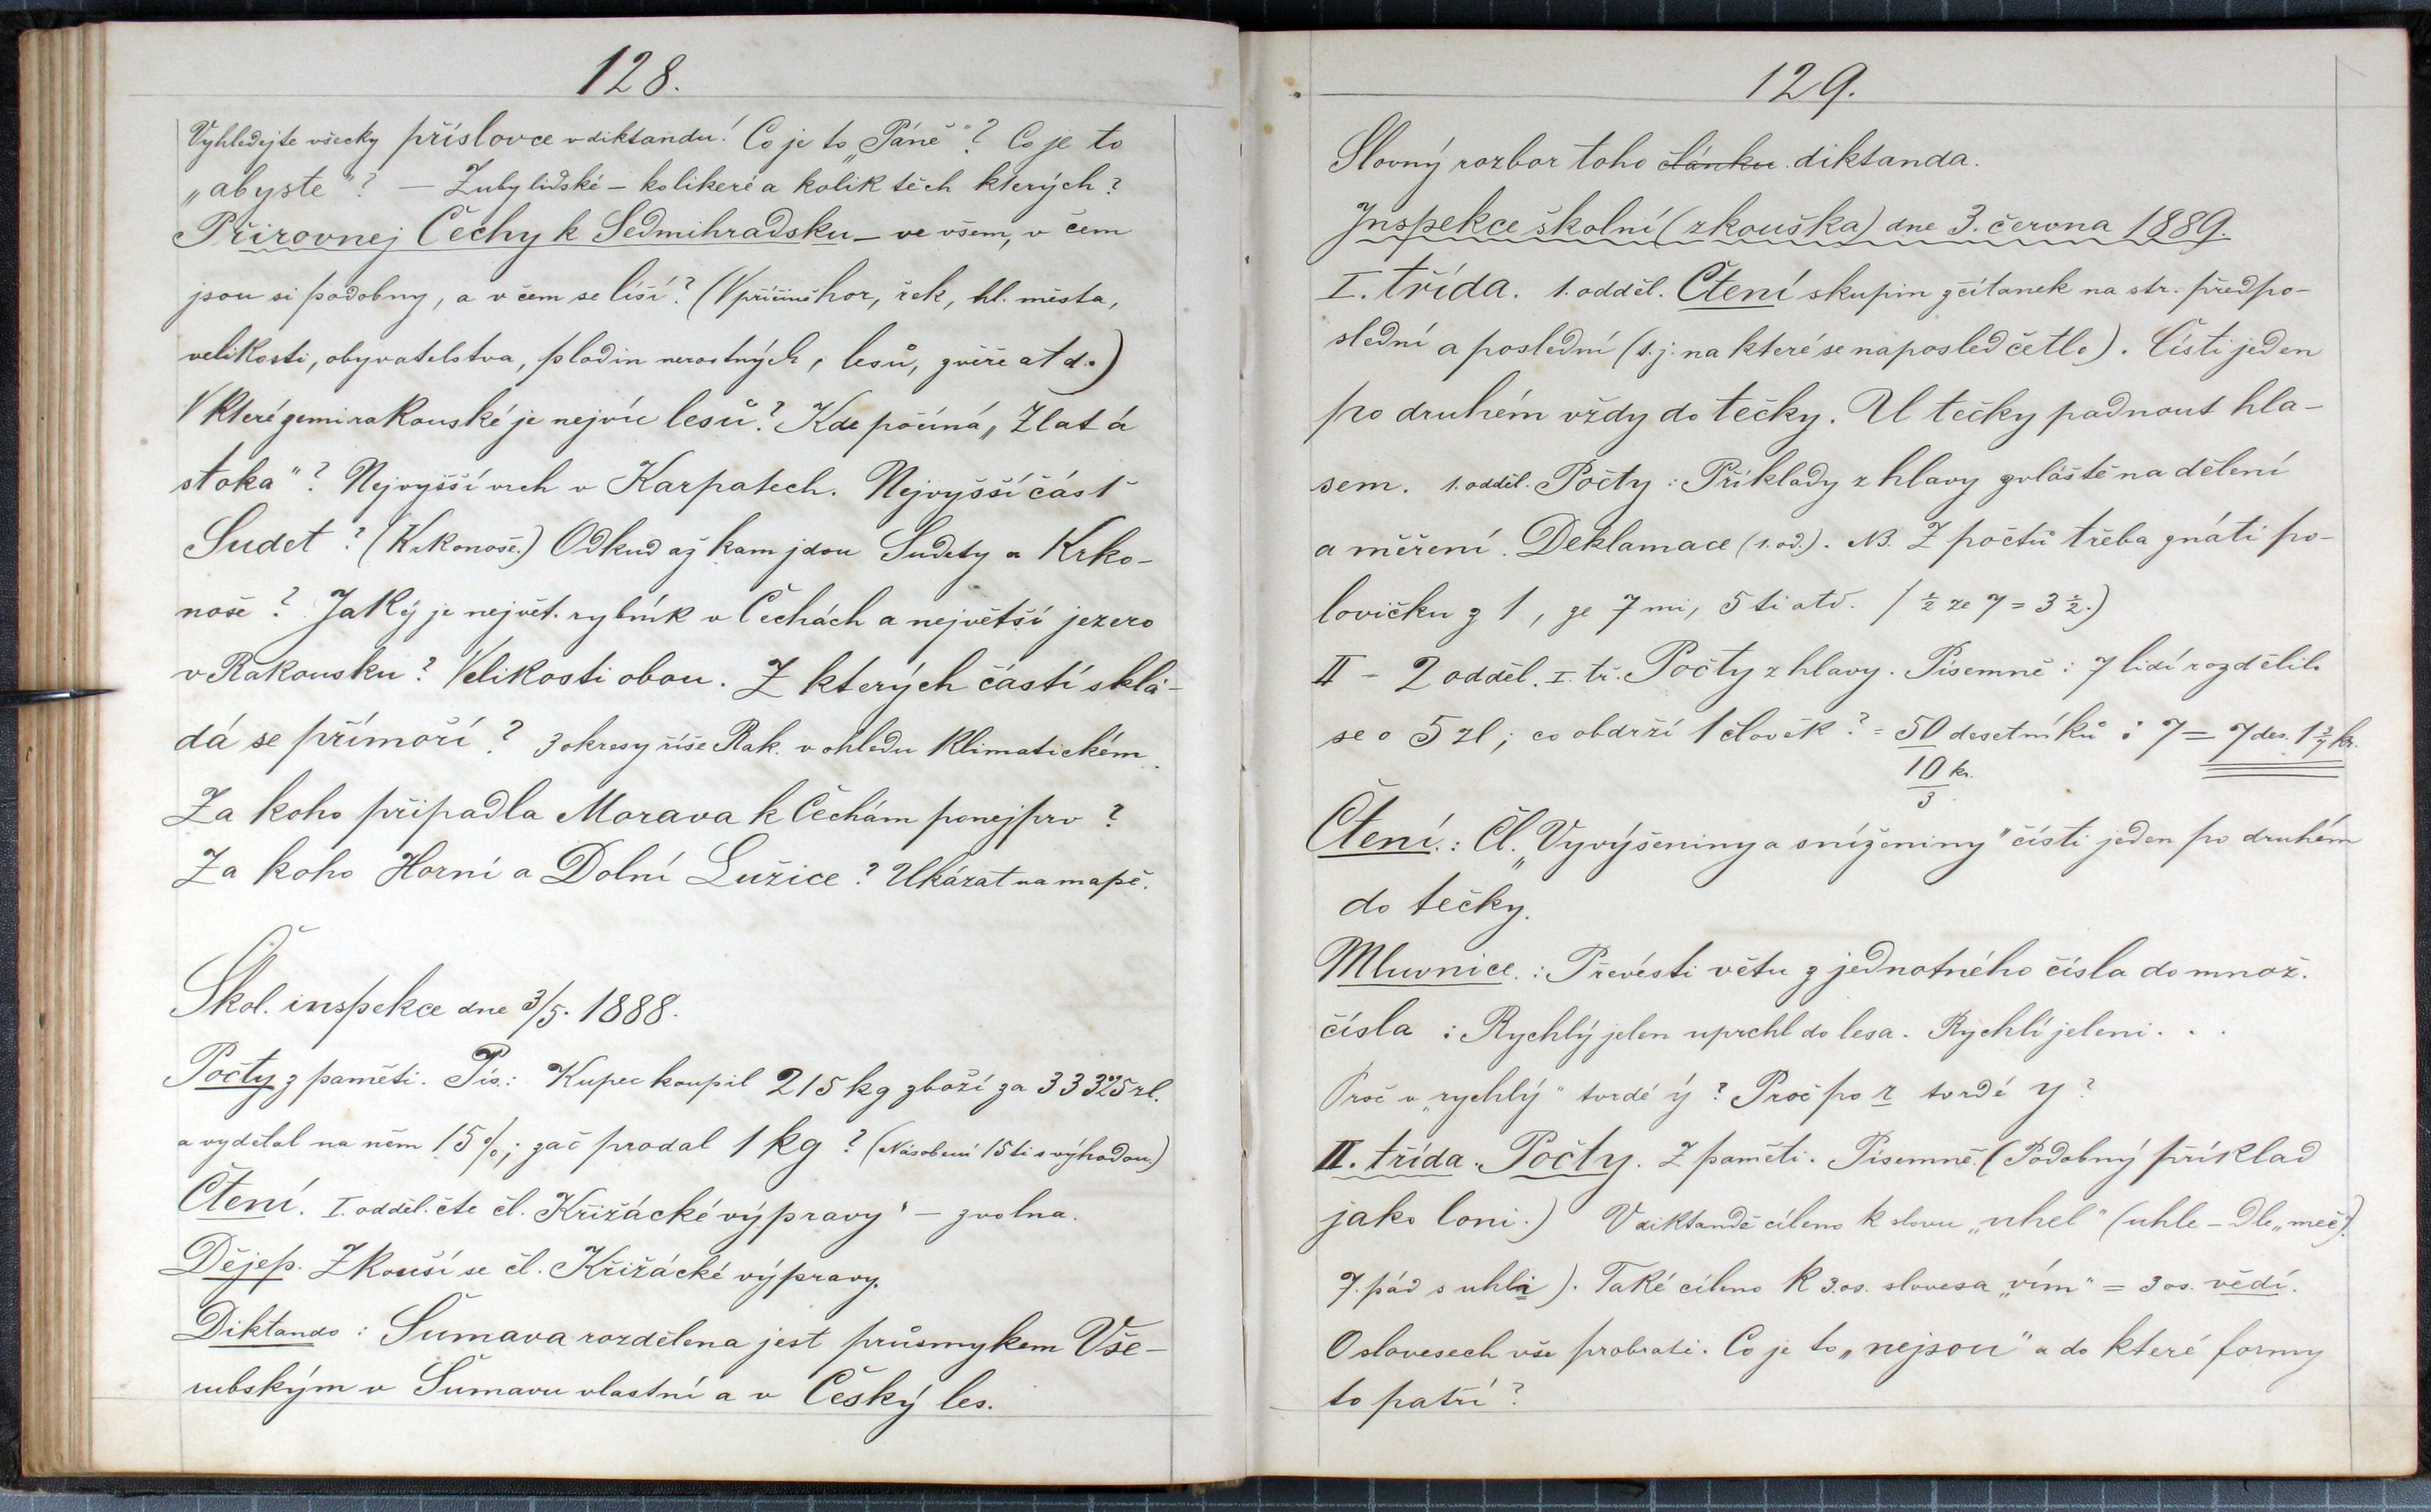 128.
Vyhledejte všecky příslovce v diktandu! Co je to „Páně"? Co je to
„abyste"? – Zuby lidské – kolikeré a kolik těch kterých?
Přirovnej Čechy k Sedmihradsku – ve všem, v čem
jsou si podobny, a v čem se liší? (V příčině hor, řek, hl. města,
velikosti, obyvatelstva, plodin nerostných, lesů, zvěře atd.)
V které zemi rakouské je nejvíc lesů? Kde počíná „Zlatá
stoka"? Nejvyšší vrch v Karpatech. Nejvyšší část
Sudet? (Krkonoše.) Odkud až kam jdou Sudety a Krko-
noše? Jaký je největ. rybník v Čechách a největší jezero
v Rakousku? Velikosti obou. Z kterých částí sklá-
dá se přímoří? 3 okresy říše Rak. v ohledu klimatickém.
Za koho připadla Morava k Čechám ponejprv?
Za koho Horní a Dolní Lužice? Ukázat na mapě.
Škol. inspekce dne 3/5. 1888.
Počty z paměti. Pís.: Kupec koupil 215 kg zboží za 33325 zl.
a vydělal na něm 15%; zač prodal 1 kg? (Násobení 15ti s výhodou.)
Čtení. I. odděl. čte čl. Křižácké výpravy" – zvolna.
Dějep. Zkouší se čl. Křižácké výpravy.
Diktando: Šumava rozdělena jest průsmykem Vše-
rubským v Šumavu vlastní a v Český les.
129.
Slovný rozbor toho článku diktanda.
Inspekce školní (zkouška) dne 3. června 1889.
I. třída. 1. odděl. Čtení skupin z čítanek na str. předpo-
slední a poslední (t. j. na které se naposled četlo). Čísti jeden
po druhém vždy do tečky. U tečky padnout hla-
sem. 1. odděl. Počty: Příklady z hlavy zvláště na dělení
a měření. Deklamace (1. od.). NB. Z počtů třeba znáti po-
lovičku z 1, ze 7mi, 5ti atd. (½ ze 7 = 3½.)
II – 2 odděl. I. tř. Počty z hlavy. Písemně: 7 lidí rozdělilo
se o 5 zl; co obdrží 1 člověk? = 50 desetníků : 7 = 7 des. 1 3/7 kr.
10 kr.
3
Čtení.: Čl. „Vyvýšeniny a sníženiny" čísti jeden po druhém
do tečky.
Mluvnice.: Převésti větu z jednotného čísla do množ.
čísla: Rychlý jelen uprchl do lesa. Rychlí jeleni . . .
Proč v „rychlý" tvrdé ý? Proč po r tvrdé y?
II. třída. Počty. Z paměti. Písemně. (Podobný příklad
jako loni.) V diktandě cíleno k slovu „uhel" (uhle – dle „meč").
7. pád s uhli). Také cíleno k 3. os. slovesa „vím" = 3 os. vědí.
O slovesech vše probrati. Co je to „nejsou" a do které formy
to patří?